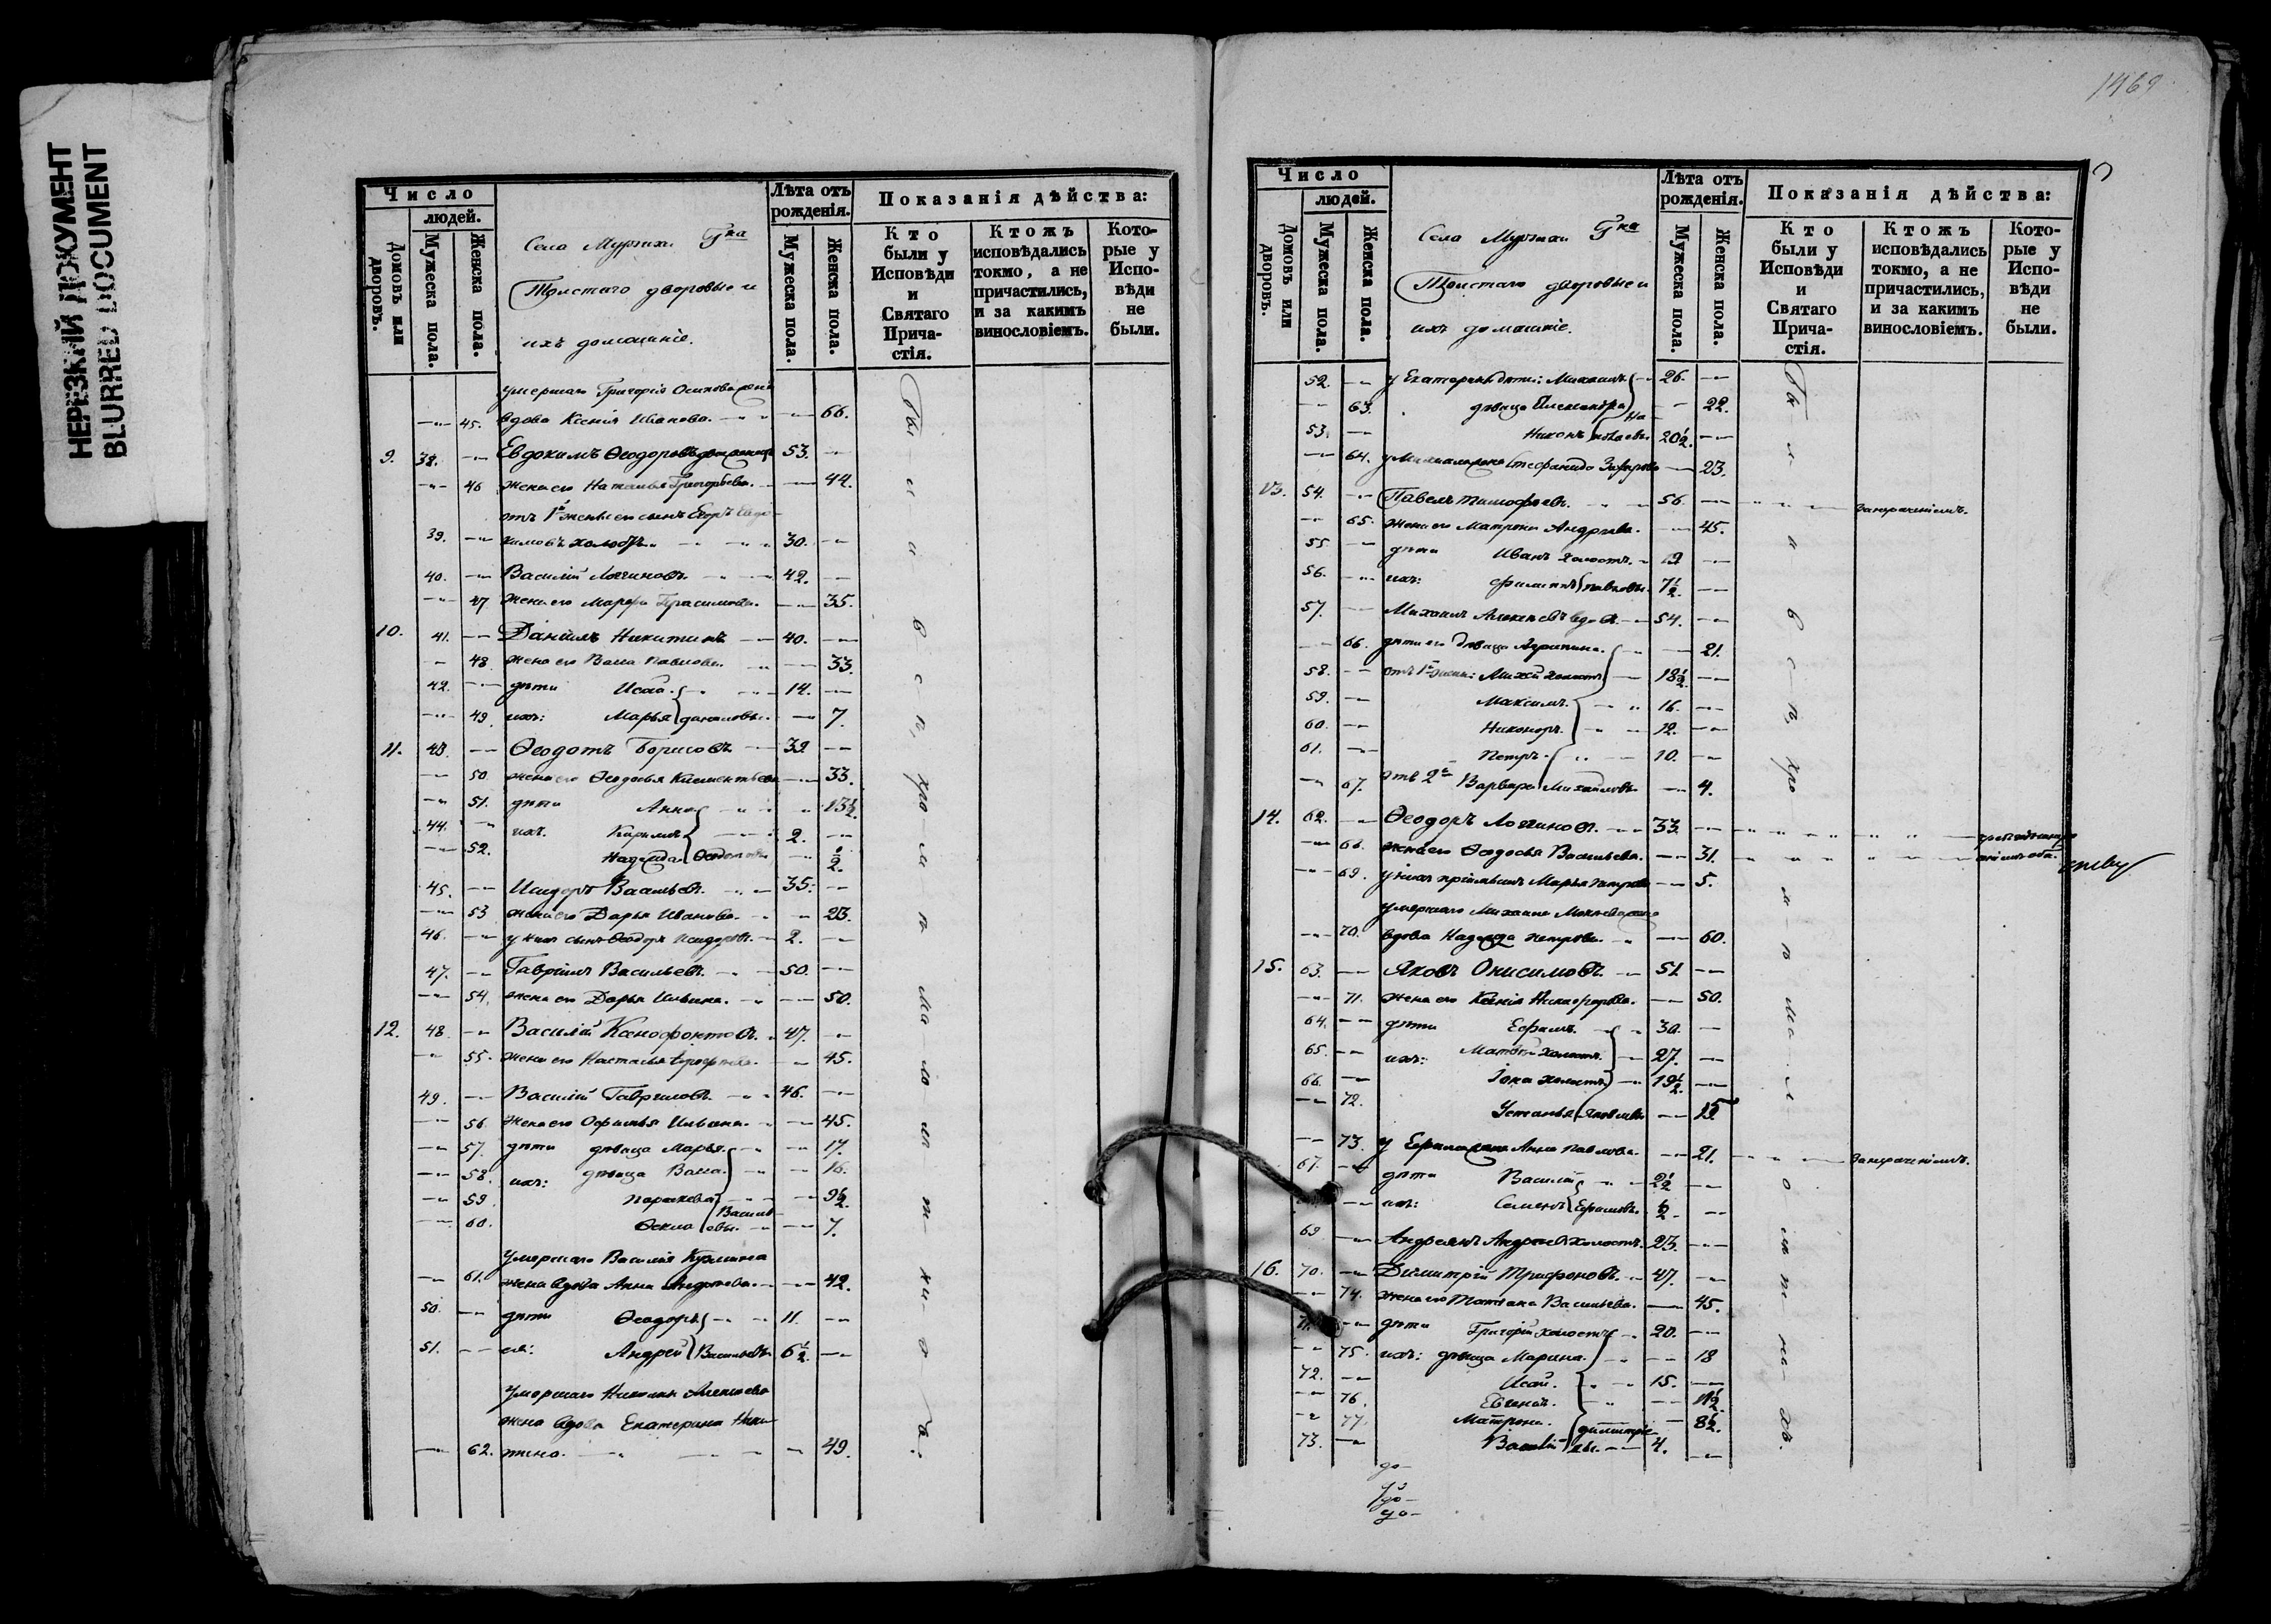 НЕРЕЗКИЙ ДОКУМЕНТ
BLURRED DOCUMENT
Число
людей.
Домовъ или дворовъ.
Мужеска пола.
Женска пола.
Села Муртки Г-на
Толстаго дворовые и
ихъ домашніе.
Лѣта отъ рожденія.
Мужеска пола.
Женска пола.
Показанія дѣйства:
Кто были у Исповѣди и Святаго Прича-стія.
Ктожъ исповѣдались токмо, а не причастились, и за какимъ винословіемъ.
Кото-рые у Испо-вѣди не были.
умершаго Григорія Осипова жена
45. вдова Ксенія Иванова. 66.
9. 38. Евдокимъ Ѳеодоровъ 53.
46 жена его Наталья Григорьева. 44.
отъ 1й жены его сынъ Егоръ Евдо-
39. кимовъ холостъ. 30.
40. Василій Логиновъ. 42.
47 жена его Марфа Герасимова. 35.
10. 41. Даніилъ Никитинъ 40.
48 жена его Васса Павлова. 33.
42. дѣти Исай. 14.
49. ихъ: Марья даниловы. 7.
11. 43. Ѳеодотъ Борисовъ 39
50 жена его Ѳеодосья Климентьева 33.
51. дѣти Анна 13½.
44. ихъ. Кирилъ 2.
52. Надежда Ѳедотовы ½.
45. Исидоръ Васильевъ. 35.
53 жена его Дарья Иванова. 23.
46. у нихъ сынъ Ѳеодоръ Исидоровъ. 2.
47. Гавріилъ Васильевъ. 50.
54. жена его Дарья Ильина. 50.
12. 48. Василій Ксенофонтовъ. 47.
55. жена его Настасья 45.
49. Василій Гавриловъ. 46.
56. жена его Офимья Ильина. 45.
57. дѣти дѣвица Марья. 17.
58. ихъ: дѣвица Васса. 16.
59 Параскева 9½.
60. Ѳекла Василь-евы. 7.
умершаго Василія Кузмина
61. жена вдова Анна Андреева. 42.
50. дѣти Ѳеодоръ 11.
51. ея: Андрей Васильевы 6½.
умершаго Николая Алексѣева
жена вдова Екатерина Ники-
62. тина. 49.
1469
Число
людей.
Домовъ или дворовъ.
Мужеска пола.
Женска пола.
Села Муртки Г-на
Толстаго дворовые и
ихъ домашніе.
Лѣта отъ рожденія.
Мужеска пола.
Женска пола.
Показанія дѣйства:
Кто были у Исповѣди и Святаго Прича-стія.
Ктожъ исповѣдались токмо, а не причастились, и за какимъ винословіемъ.
Кото-рые у Испо-вѣди не были.
52. у Екатерины дѣти: Михаилъ 26.
63. дѣвица Александра 22.
53. Никонъ Николаевы 20½.
64. у Михаила жена Стефанида 23.
13. 54. Павелъ Тимофеевъ. 56.
65. жена его Матрона Андреева. 45.
55 дѣти Иванъ холостъ. 19
56. ихъ: Филиппъ павловы. 7½.
57. Михаилъ Алексѣевъ вдовъ. 54.
66. дѣти его дѣвица Агрипина. 21.
58. отъ 1й жены: холостъ 18½.
59. Максимъ. 16.
60. Никоноръ. 12.
61. Петръ. 10.
67. отъ 2й Варвара Михайловы 4.
14. 62. Ѳеодоръ Логиновъ. 33.
68. жена его Ѳеодосья Васильева. 31.
69. у нихъ пріемышъ Марья Петрова 5.
умершаго Михаила жена
70. вдова Надежда петрова. 60.
15. 63. Яковъ Онисимовъ. 51
71. жена его Ксенія Никифорова. 50.
64. дѣти Ефимъ. 30.
65. ихъ: Матвѣй холостъ. 27.
66. Іона холостъ 19½
72. Устинья Яковлевы 15
73. у Ефима жена Анна Павлова. 21.
67. дѣти Василій 2½
ихъ: Семенъ Ефимовы. ½.
69 Андреянъ Андреевъ холостъ. 23.
16. 70. Димитрій Трифоновъ. 47.
74. жена его Татіана Васильева. 45.
71. дѣти Григорій холостъ 20.
75. ихъ: дѣвица Марина. 18
72. Исай. 15.
76. 11½
77. Матрона. 8½.
73. Василій димитріе-вы. 4.